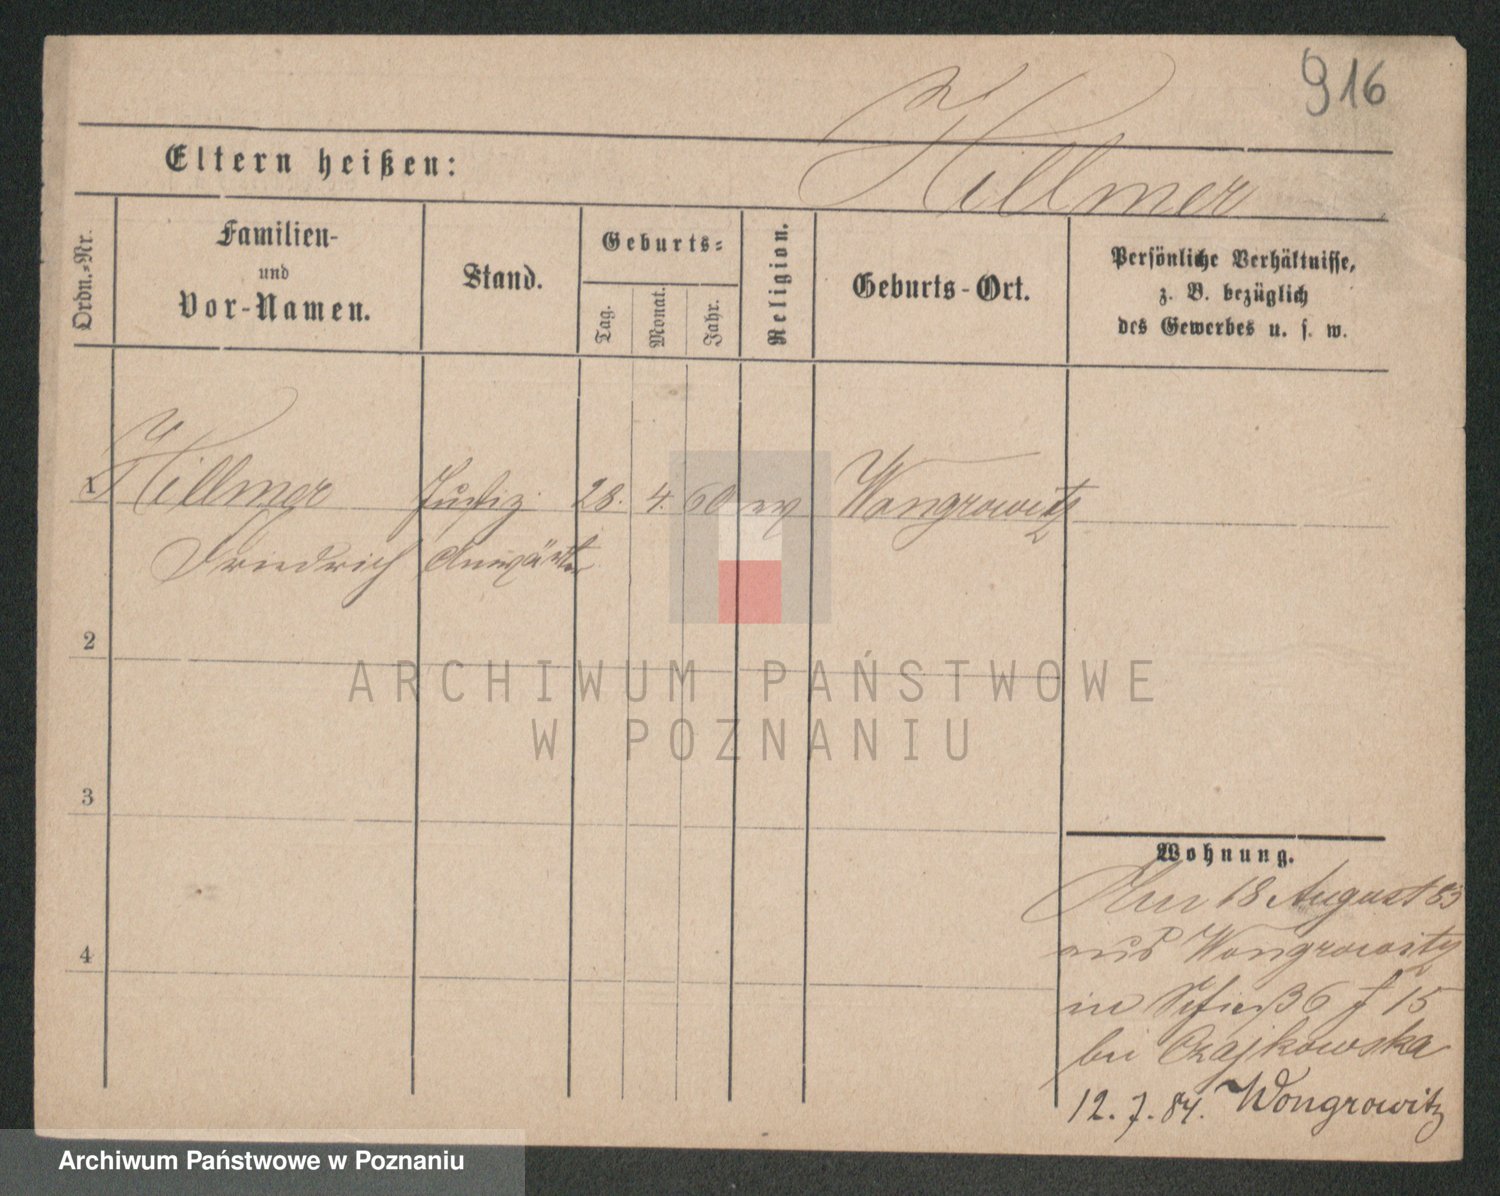 916
Hillmer
Eltern heißen:
Ordn.-Nr.
Familien-
und
Vor-Namen.
Stand.
Geburts-
Tag.
Monat.
Jahr.
Religion.
Geburts-Ort.
Persönliche Verhältnisse,
z. B. bezüglich
des Gewerbes u. s. w.
1 Hillmer Justiz 28. 4. 60 ev Wongrowitz
Friedrich Anwärter
2
3
4
Wohnung.
Am 18 August 83
aus Wongrowitz
in Schieß 6 15
bei Czajkowska
12. 7. 84. Wongrowitz
ARCHIWUM PAŃSTWOWE
W POZNANIU
Archiwum Państwowe w Poznaniu